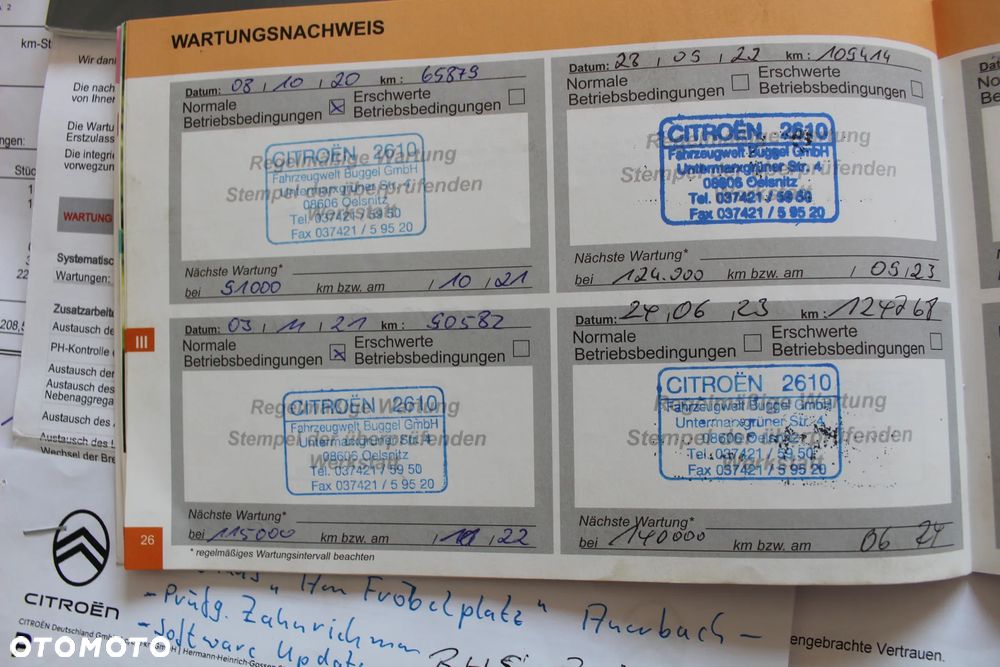 WARTUNGSNACHWEIS
Datum: 08, 10, 20 km: 65879
Normale Betriebsbedingungen ☒ Erschwerte Betriebsbedingungen ☐
Regelmäßige Wartung
Stempel der überprüfenden
Werkstatt
CITROËN 2610
Fahrzeugwelt Buggel GmbH
Untermarxgrüner Str. 4
08606 Oelsnitz
Tel. 037421 / 59 50
Fax 037421 / 5 95 20
Nächste Wartung*
bei 91000 km bzw. am , 10, 21
Datum: 23, 05, 22 km: 109414
Normale Betriebsbedingungen ☐ Erschwerte Betriebsbedingungen ☐
Regelmäßige Wartung
Stempel der überprüfenden
Werkstatt
CITROËN 2610
Fahrzeugwelt Buggel GmbH
Untermarxgrüner Str. 4
08606 Oelsnitz
Tel. 037421 / 59 50
Fax 037421 / 5 95 20
Nächste Wartung*
bei 124.000 km bzw. am , 05, 23
III
Datum: 03, 11, 21 km: 90582
Normale Betriebsbedingungen ☒ Erschwerte Betriebsbedingungen ☐
Regelmäßige Wartung
Stempel der überprüfenden
Werkstatt
CITROËN 2610
Fahrzeugwelt Buggel GmbH
Untermarxgrüner Str. 4
08606 Oelsnitz
Tel. 037421 / 59 50
Fax 037421 / 5 95 20
Nächste Wartung*
bei 115000 km bzw. am , 22
Datum: 24, 06, 23 km: 124768
Normale Betriebsbedingungen ☐ Erschwerte Betriebsbedingungen ☐
Regelmäßige Wartung
Stempel der überprüfenden
Werkstatt
CITROËN 2610
Fahrzeugwelt Buggel GmbH
Untermarxgrüner Str. 4
08606 Oelsnitz
Tel. 037421 / 59 50
Fax 037421 / 5 95 20
Nächste Wartung*
bei 140000 km bzw. am 06 24
26
* regelmäßiges Wartungsintervall beachten
km-St
Wir dan
Die nach
von Ihner
Die Wartu
Erstzulass
Die integrie
vorwegzun
ngen:
Stüc
WARTUNG
Systematisc
Wartungen:
Zusatzarbeite
Austausch de
PH-Kontrolle
Austausch der
Austausch des
Nebenaggrega
Austausch des A
Austausch des L
Wechsel der Bre
208,5
"Am Fröbelplatz" Auerbach -
- Prüfg. Zahnriemen
- Software Update
CITROËN
CITROËN Deutschland Gmb
Hermann-Heinrich-Gossen
engebrachte Vertrauen.
OTOMOTO